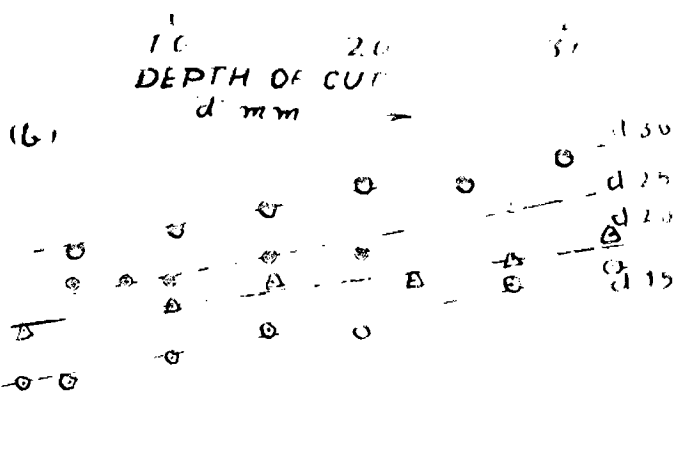 1.0 2.0
DEPTH OF CUT
d mm
(b)
d 30
d 25
d 20
d 15